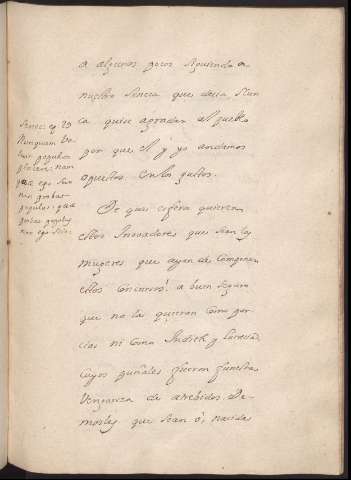 a algunos pocos siguiendo a
nuestro Seneca que decia Nun
ca quise agradar al pueblo
por que el y yo andamos
opuestos en los gustos.
Seneca ep 29
Nunquam vo
lui populo
placere: nam
quæ ego scio
non probat
populus: quæ
probat populus
non ego scio.
De que esfera quieren
estos Inovadores que sean las
mugeres que ayan de componer
estos concursos? a buen seguro
que no las quieran como Por
cias ni como Judith y Lucrecia
cuyos puñales fueron funesta
venganza de atrebidos De
mosles que sean ó, nacidas